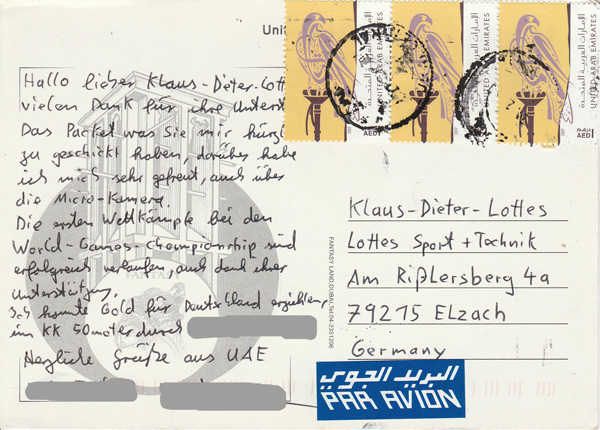 Unit
Hallo lieber Klaus-Dieter-Lott
vielen Dank für ihre Unterst
Das Packet was Sie mir kürzl
zu geschickt haben, darüber habe
ich mich sehr gefreut, auch über
die Micro-Kamera.
Die ersten Wettkämpfe bei den
World-Games-Championship sind
erfolgreich verlaufen, auch dank ihrer
Unterstützung.
Ich konnte Gold für Deutschland erziehlen,
im KK 50meter durch
Herzliche Grüße aus UAE
FANTASY LAND, DUBAI, Tel: 04-2351206
الإمارات العربية المتحدة
UNITED ARAB EMIRATES
AED1
الإمارات العربية المتحدة
UNITED ARAB EMIRATES
AED1
الإمارات العربية المتحدة
UNITED ARAB EMIRATES
AED1
Klaus-Dieter-Lottes
Lottes Sport + Technik
Am Rißlersberg 4a
79215 Elzach
Germany
البريد الجوي
PAR AVION